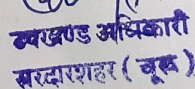 खण्ड अधिकारी
सरदारशहर ( चूरू )